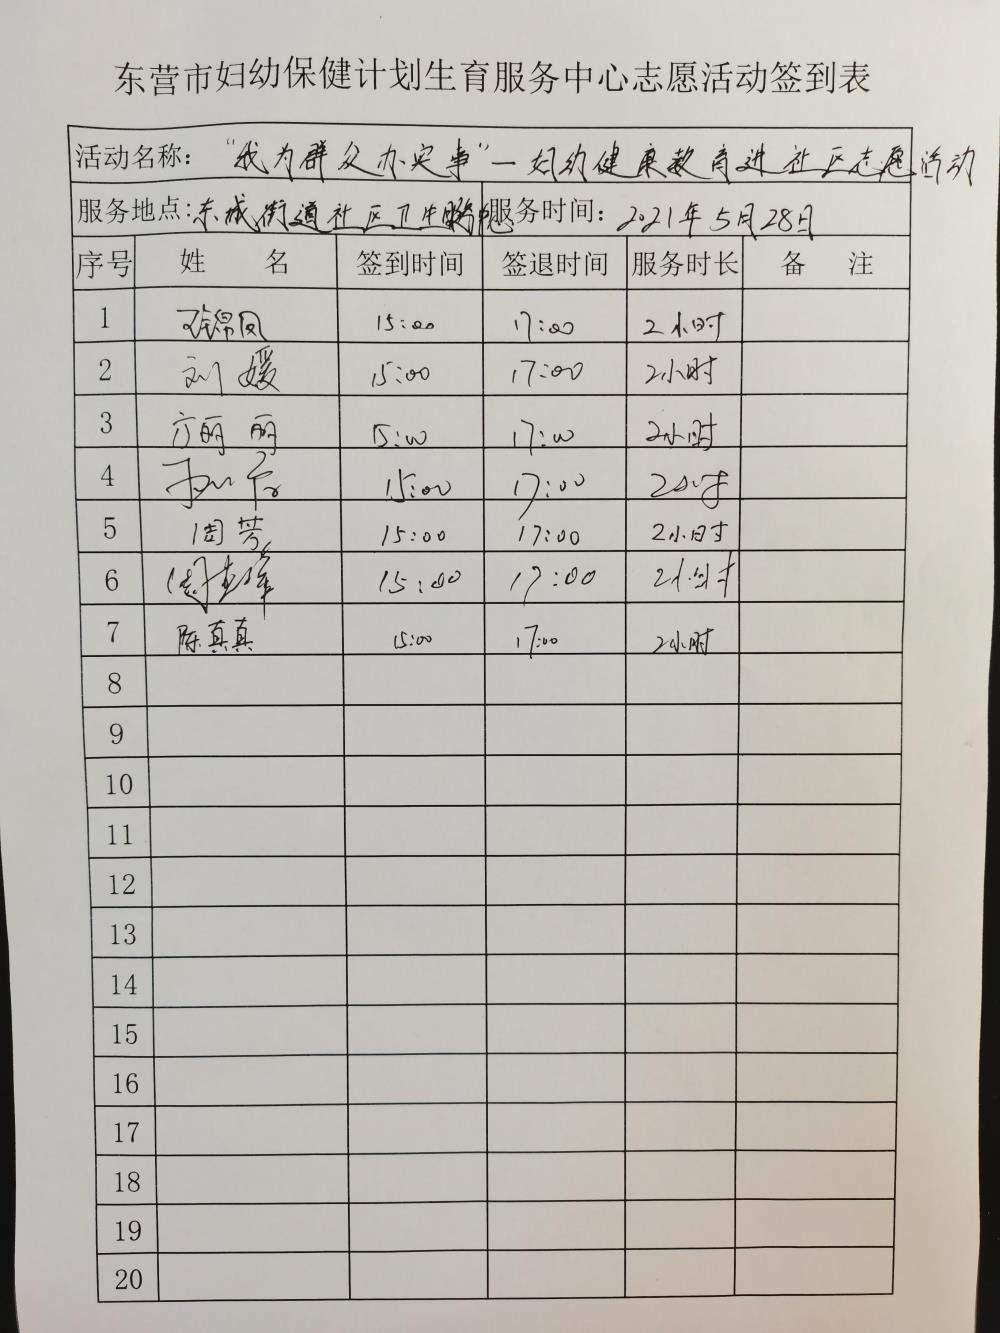 东营市妇幼保健计划生育服务中心志愿活动签到表
活动名称：“我为群众办实事”一妇幼健康教育进社区志愿活动
服务地点:东城街道社区卫生服务中心 服务时间：2021年5月28日
序号 姓 名 签到时间 签退时间 服务时长 备 注
1 15:00 17:00 2小时
2 刘媛 15:00 17:00 2小时
3 丽 15:00 17:00 2小时
4 15:00 17:00 2小时
5 周芳 15:00 17:00 2小时
6 15:00 17:00 2小时
7 陈真真 15:00 17:00 2小时
8
9
10
11
12
13
14
15
16
17
18
19
20